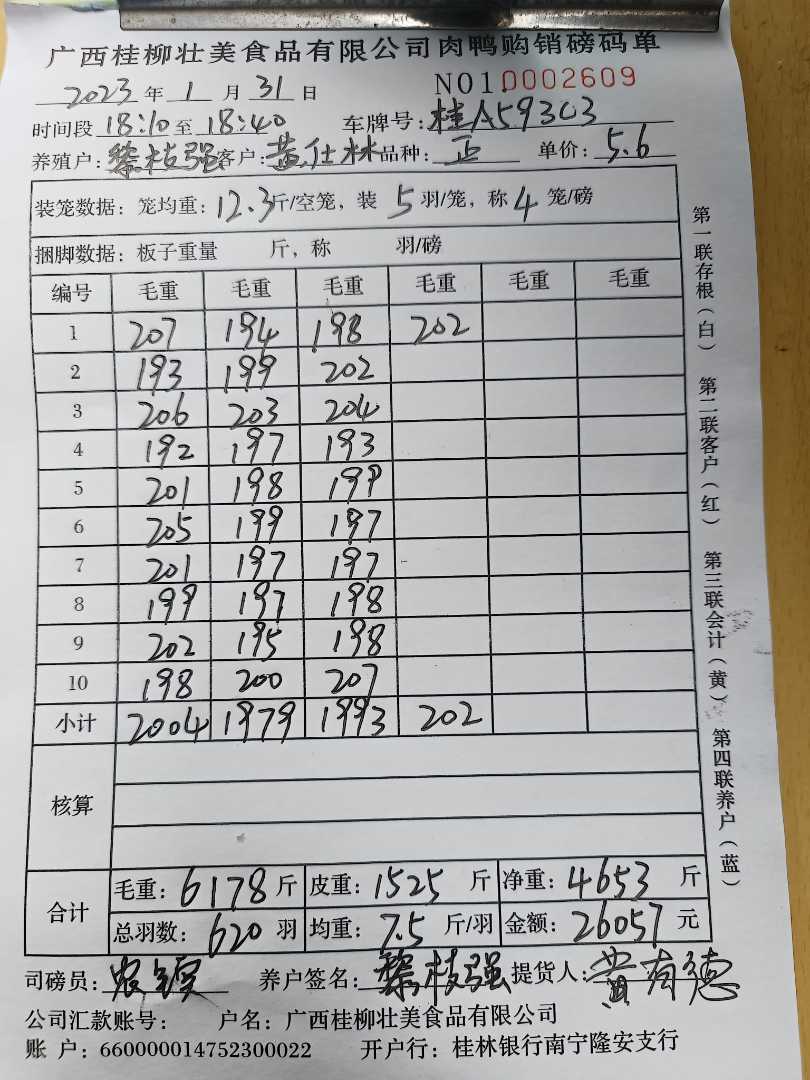 广西桂柳壮美食品有限公司肉鸭购销磅码单
2023 年 1 月 31 日 NO10002609
时间段 18:10 至 18:40 车牌号: 桂A593C3
养殖户: 黎枝强 客户: 黄仕林 品种: 正 单价: 5.6
装笼数据: 笼均重: 12.3 斤/空笼, 装 5 羽/笼, 称 4 笼/磅
捆脚数据: 板子重量 斤, 称 羽/磅
编号 毛重 毛重 毛重 毛重 毛重 毛重
1 207 194 198 202
2 193 199 202
3 206 203 204
4 192 197 193
5 201 198 199
6 205 199 197
7 201 197 197
8 199 197 198
9 202 195 198
10 198 200 207
小计 2004 1979 1993 202
核算
合计 毛重: 6178 斤 皮重: 1525 斤 净重: 4653 斤
总羽数: 620 羽 均重: 7.5 斤/羽 金额: 26057 元
司磅员: 养户签名: 黎枝强 提货人: 黄有德
公司汇款账号: 户名: 广西桂柳壮美食品有限公司
账 户: 660000014752300022 开户行: 桂林银行南宁隆安支行
第一联存根(白) 第二联客户(红) 第三联会计(黄) 第四联养户(蓝)